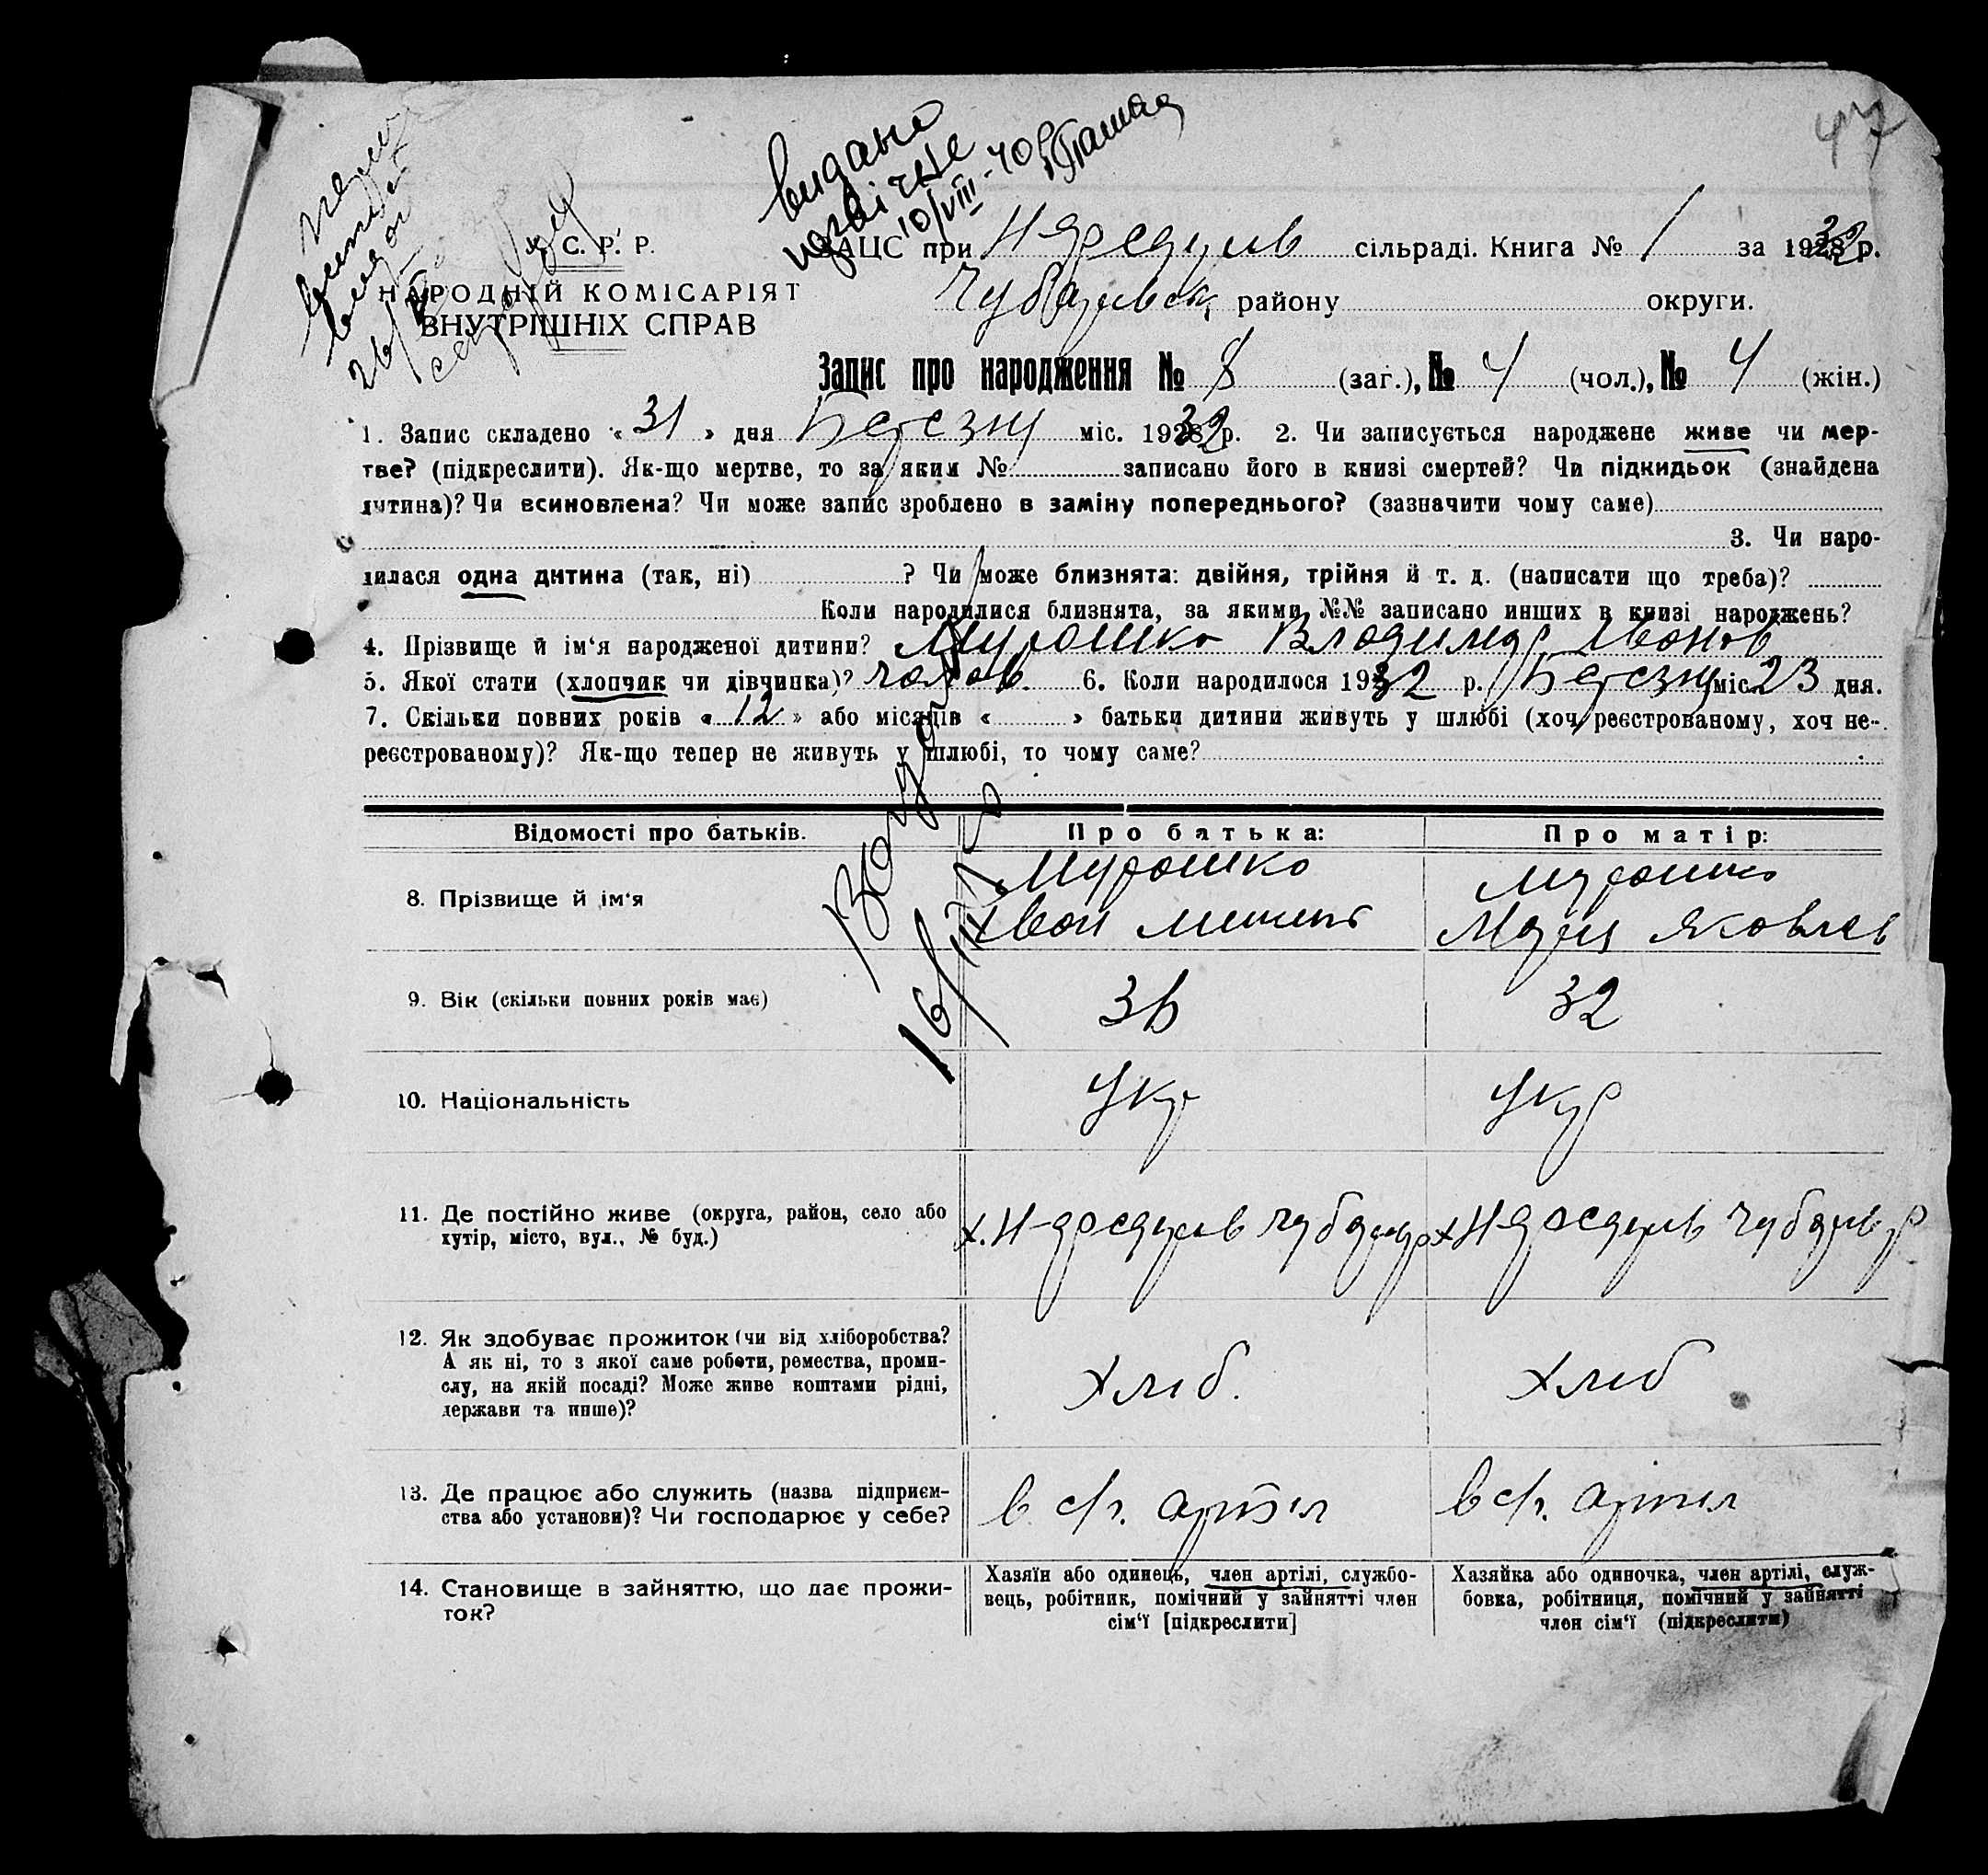 47
видано
10/VIII-40р
У. С. Р. Р.
НАРОДНІЙ КОМІСАРІЯТ
ВНУТРІШНІХ СПРАВ
ЗАЦС при сільраді. Книга № 1 за 1932 р.
району округи.
Запис про народження № 8 (заг.), № 4 (чол.), № 4 (жін.)
1. Запис складено «31» дня Березня міс. 1932 р. 2. Чи записується народжене живе чи мер-
тве? (підкреслити). Як-що мертве, то за яким № записано його в книзі смертей? Чи підкидьок (знайдена
дитина)? Чи всиновлена? Чи може запис зроблено в заміну попереднього? (зазначити чому саме)
3. Чи наро-
дилася одна дитина (так, ні) ? Чи може близнята: двійня, трійня й т. д. (написати що треба)?
Коли народилися близнята, за якими №№ записано инших в книзі народжень?
4. Прізвище й ім‘я народженої дитини? Мурошко Владимир Иванов
5. Якої стати (хлопчик чи дівчинка)? чолов. 6. Коли народилося 1932 р. Березня міс. 23 дня.
7. Скільки повних років «12» або місяців « » батьки дитини живуть у шлюбі (хоч реєстрованому, хоч не-
реєстрованому)? Як-що тепер не живуть у шлюбі, то чому саме?
Відомості про батьків. Про батька: Про матір:
8. Прізвище й ім‘я
Мурошко
Иван
Мурошко
Мария Яковлев
9. Вік (скільки повних років має) 36 32
10. Національність Укр Укр
11. Де постійно живе (округа, район, село або
хутір, місто, вул., № буд.)
12. Як здобуває прожиток (чи від хліборобства?
А як ні, то з якої саме роботи, ремества, проми-
слу, на якій посаді? Може живе коштами рідні,
держави та инше)?
хліб. хліб
13. Де працює або служить (назва підприєм-
ства або установи)? Чи господарює у себе?
в с/г. артіл в с/г. артіл
14. Становище в зайняттю, що дає прожи-
ток?
Хазяїн або одинець, член артілі, службо-
вець, робітник, помічний у зайнятті член
сім‘ї [підкреслити]
Хазяйка або одиночка, член артілі, служ-
бовка, робітниця, помічний у зайнятті
член сім‘ї (підкреслити)